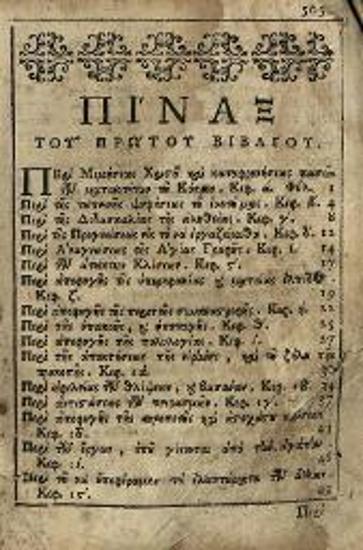 505
ΠΙΝΑΞ
ΤΟΥ ΠΡΩΤΟΥ ΒΙΒΛΙΟΥ.
Περὶ Μιμήσεως Χριστοῦ καὶ καταφρονήσεως πασῶν
τῶν ματαιοτήτων τοῦ Κόσμου. Κεφ. α. Φύλ. 1
Περὶ τῆς ταπεινῆς Κεφ. β. 4
Περὶ τῆς Διδασκαλίας τῆς ἀληθείας. Κεφ. γ. 8
Περὶ τῆς Προγνώσεως εἰς τὸ νὰ ἐργαζώμεθα. Κεφ. δ. 12
Περὶ Ἀναγνώσεως τῆς Ἁγίας Γραφῆς. Κεφ. ε. 14
Περὶ τῶν ἀτάκτων Κλίσεων. Κεφ. ς. 17
Περὶ ἀποφυγῆς τῆς ὑπερηφανίας καὶ ματαίας ἐλπίδος.
Κεφ. ζ. 19
Περὶ ἀποφυγῆς τῆς περιττῆς συναναστροφῆς. Κεφ. η. 22
Περὶ τῆς ὑπακοῆς, καὶ ὑποταγῆς. Κεφ. θ. 25
Περὶ ἀποφυγῆς τῆς πολυλογίας. Κεφ. ι. 27
Περὶ τῆς ἀποκτήσεως τῆς εἰρήνης, καὶ τοῦ ζήλου τῆς
προκοπῆς. Κεφ. ια. 30
Περὶ ὠφελείας τῶν θλίψεων, καὶ βασάνων. Κεφ. ιβ. 34
Περὶ ἀντιστάσεως τῶν πειρασμῶν. Κεφ. ιγ. 37
Περὶ ἀποφυγῆς τῆς
Κεφ. ιδ.
Περὶ τῶν ἔργων, ὁποῦ γίνονται ἀπὸ τὴν ἀγάπην.
Κεφ. ιε.
Περὶ τοῦ νὰ ὑποφέρωμεν τὰ ἐλαττώματα τῶν ἄλλων.
Κεφ. ιϛ.
Περὶ